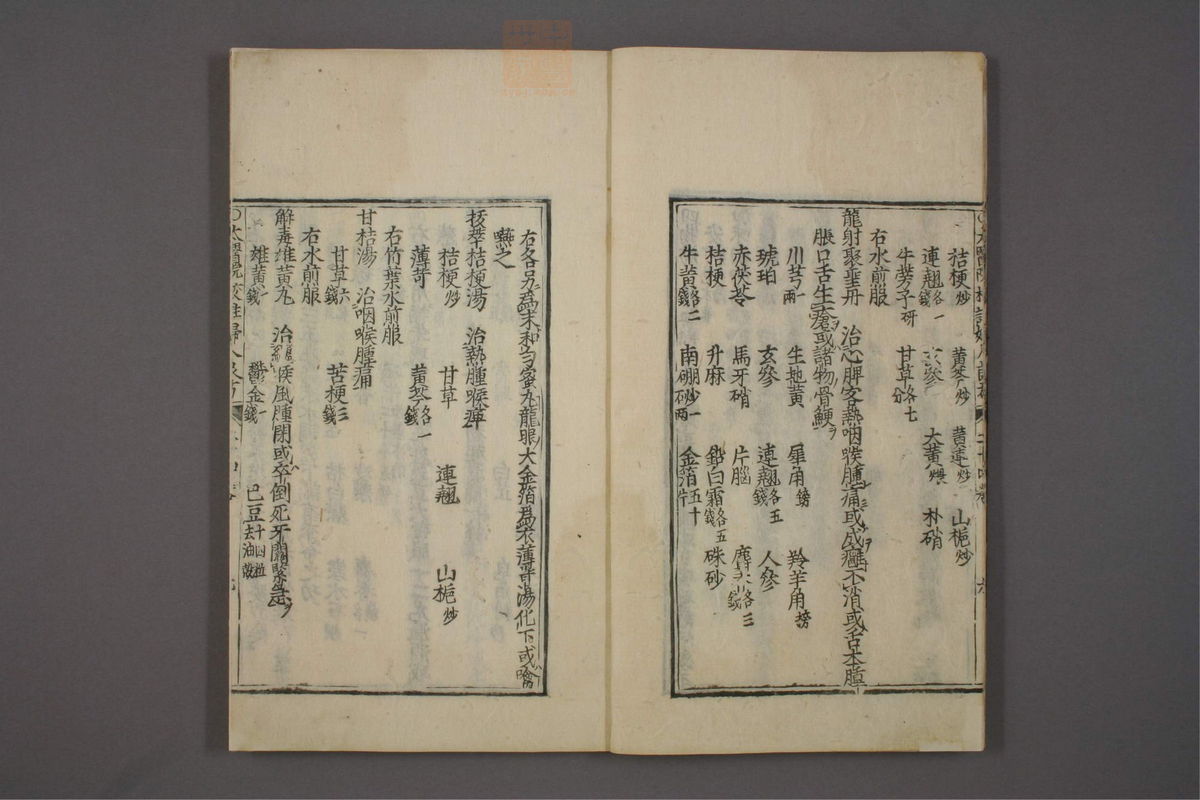 桔梗炒 黄芩炒 黄連炒 山梔炒
連翹各一錢 玄參 大黄煨 朴硝
牛蒡子研 甘草各七分
右水煎服
龍射聚聖丹 治心脾客熱咽喉腫痛或成癰不消或舌本腫
脹口舌生瘡或諸物骨鯁
川芎一兩 生地黄 犀角鎊 羚羊角鎊
琥珀 玄參 連翹各五錢 人參
赤茯苓 馬牙硝 片腦 麝各三錢
桔梗 升麻 鉛白霜各五錢 硃砂
牛黄各二錢 南硼砂一兩 金箔五十片
右各另爲末和匀蜜丸龍眼大金箔爲衣薄荷湯化下或噙
嚥之
拔萃桔梗湯 治熱腫喉痺
桔梗炒 甘草 連翹 山梔炒
薄荷 黄芩各一錢
右竹葉水煎服
甘桔湯 治咽喉腫痛
甘草六錢 苦梗三錢
右水煎服
解毒雄黄丸 治纏喉風腫閉或卒倒死牙關緊急
雄黄一錢 鬱金一錢 巴豆十四粒去油殼
○太醫院校註婦人良方